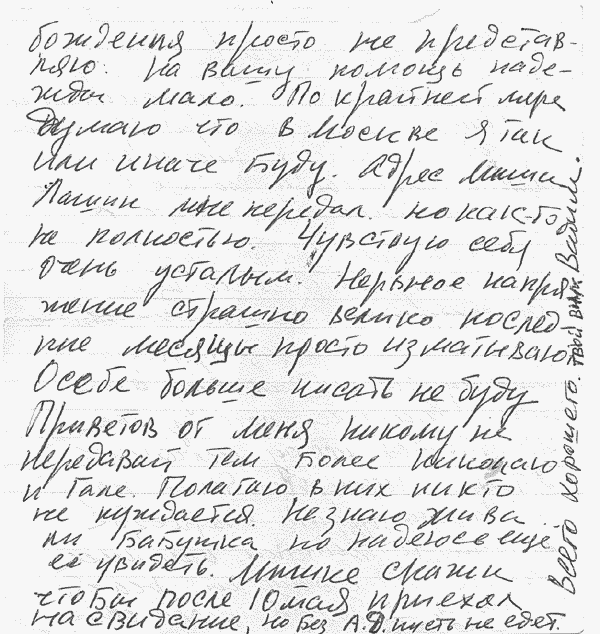 бождения просто не представ-
ляю. на вашу помощь наде-
жды мало. По крайнест мере
думаю что в Москве я так
или иначе буду. Адрес Миши
Лашин мне передал. но как-то
не полностью. Чувствую себя
очень усталым. Нервное напря
жение страшно велико послед
ние месяцы просто изматываю
О себе больше писать не буду
Приветов от меня никому не
передавай тем более Николаю
и Гале. Полагаю в них никто
не нуждается. Не знаю жива
ли Бабушка но надеюсь ещё
её увидеть. Мишке скажи
чтобы после 10 мая приехал
на свидание, но без А.Д. пусть не едет.
Всего хорошего. твой Вадим.